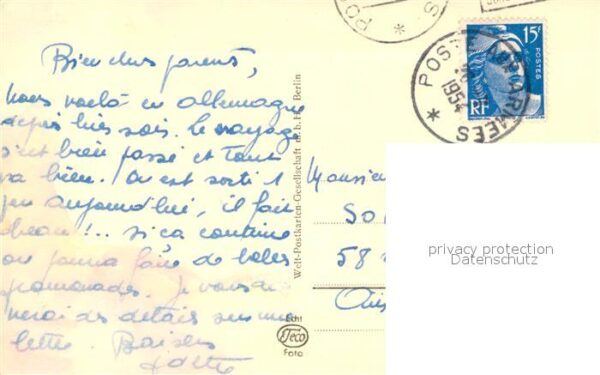 Bien chers parents,
nous voilà en allemagne
depuis hier soir. le voyage
s'est bien passé et tout
va bien. On est sorti 1
peu aujourd'hui, il fait
beau !.. si ça continue
on pourra faire de belles
promenades. Je vous
des détails sur une
lettre. Baisers
Welt-Postkarten-Gesellschaft m.b.H. Berlin
Echt
Foto
Monsieu
SO
58
POSTE AUX ARMEES
1954
15F
POSTES
RF
privacy protection
Datenschutz